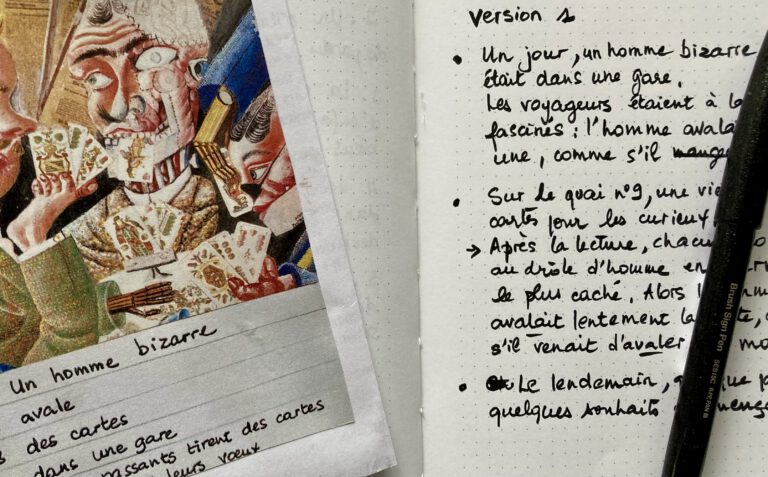 Un homme bizarre
avale
des cartes
dans une gare
passants tirent des cartes
leurs vœux
Version 1
• Un jour, un homme bizarre
était dans une gare.
Les voyageurs étaient à la
fascinés : l'homme avalai
une, comme s'il mange
• Sur le quai n°9, une vie
cartes pour les curieux
→ Après la lecture, chacun
au drôle d'homme en
le plus caché. Alors l
avalait lentement la
s'il venait d'avaler
• Le lendemain,
quelques souhaits
Brush Sign Pen